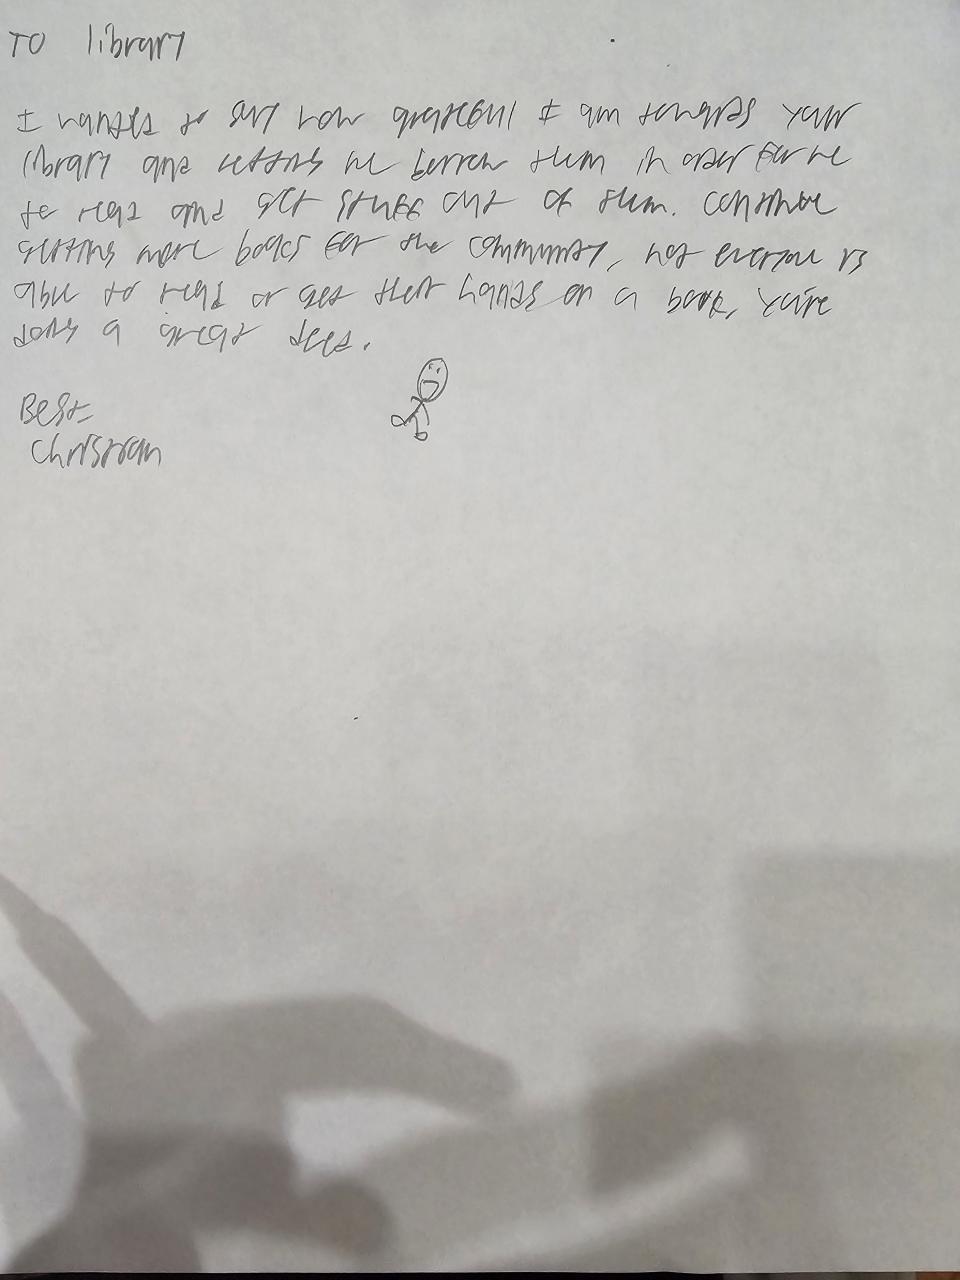 To library
I wanted to say how grateful I am towards your
library and letting me borrow them in order for me
to read and get stuff out of them. Continue
getting more books for the community, not everyone is
able to read or get their hands on a book, you're
doing a great deed.
Best
Christian